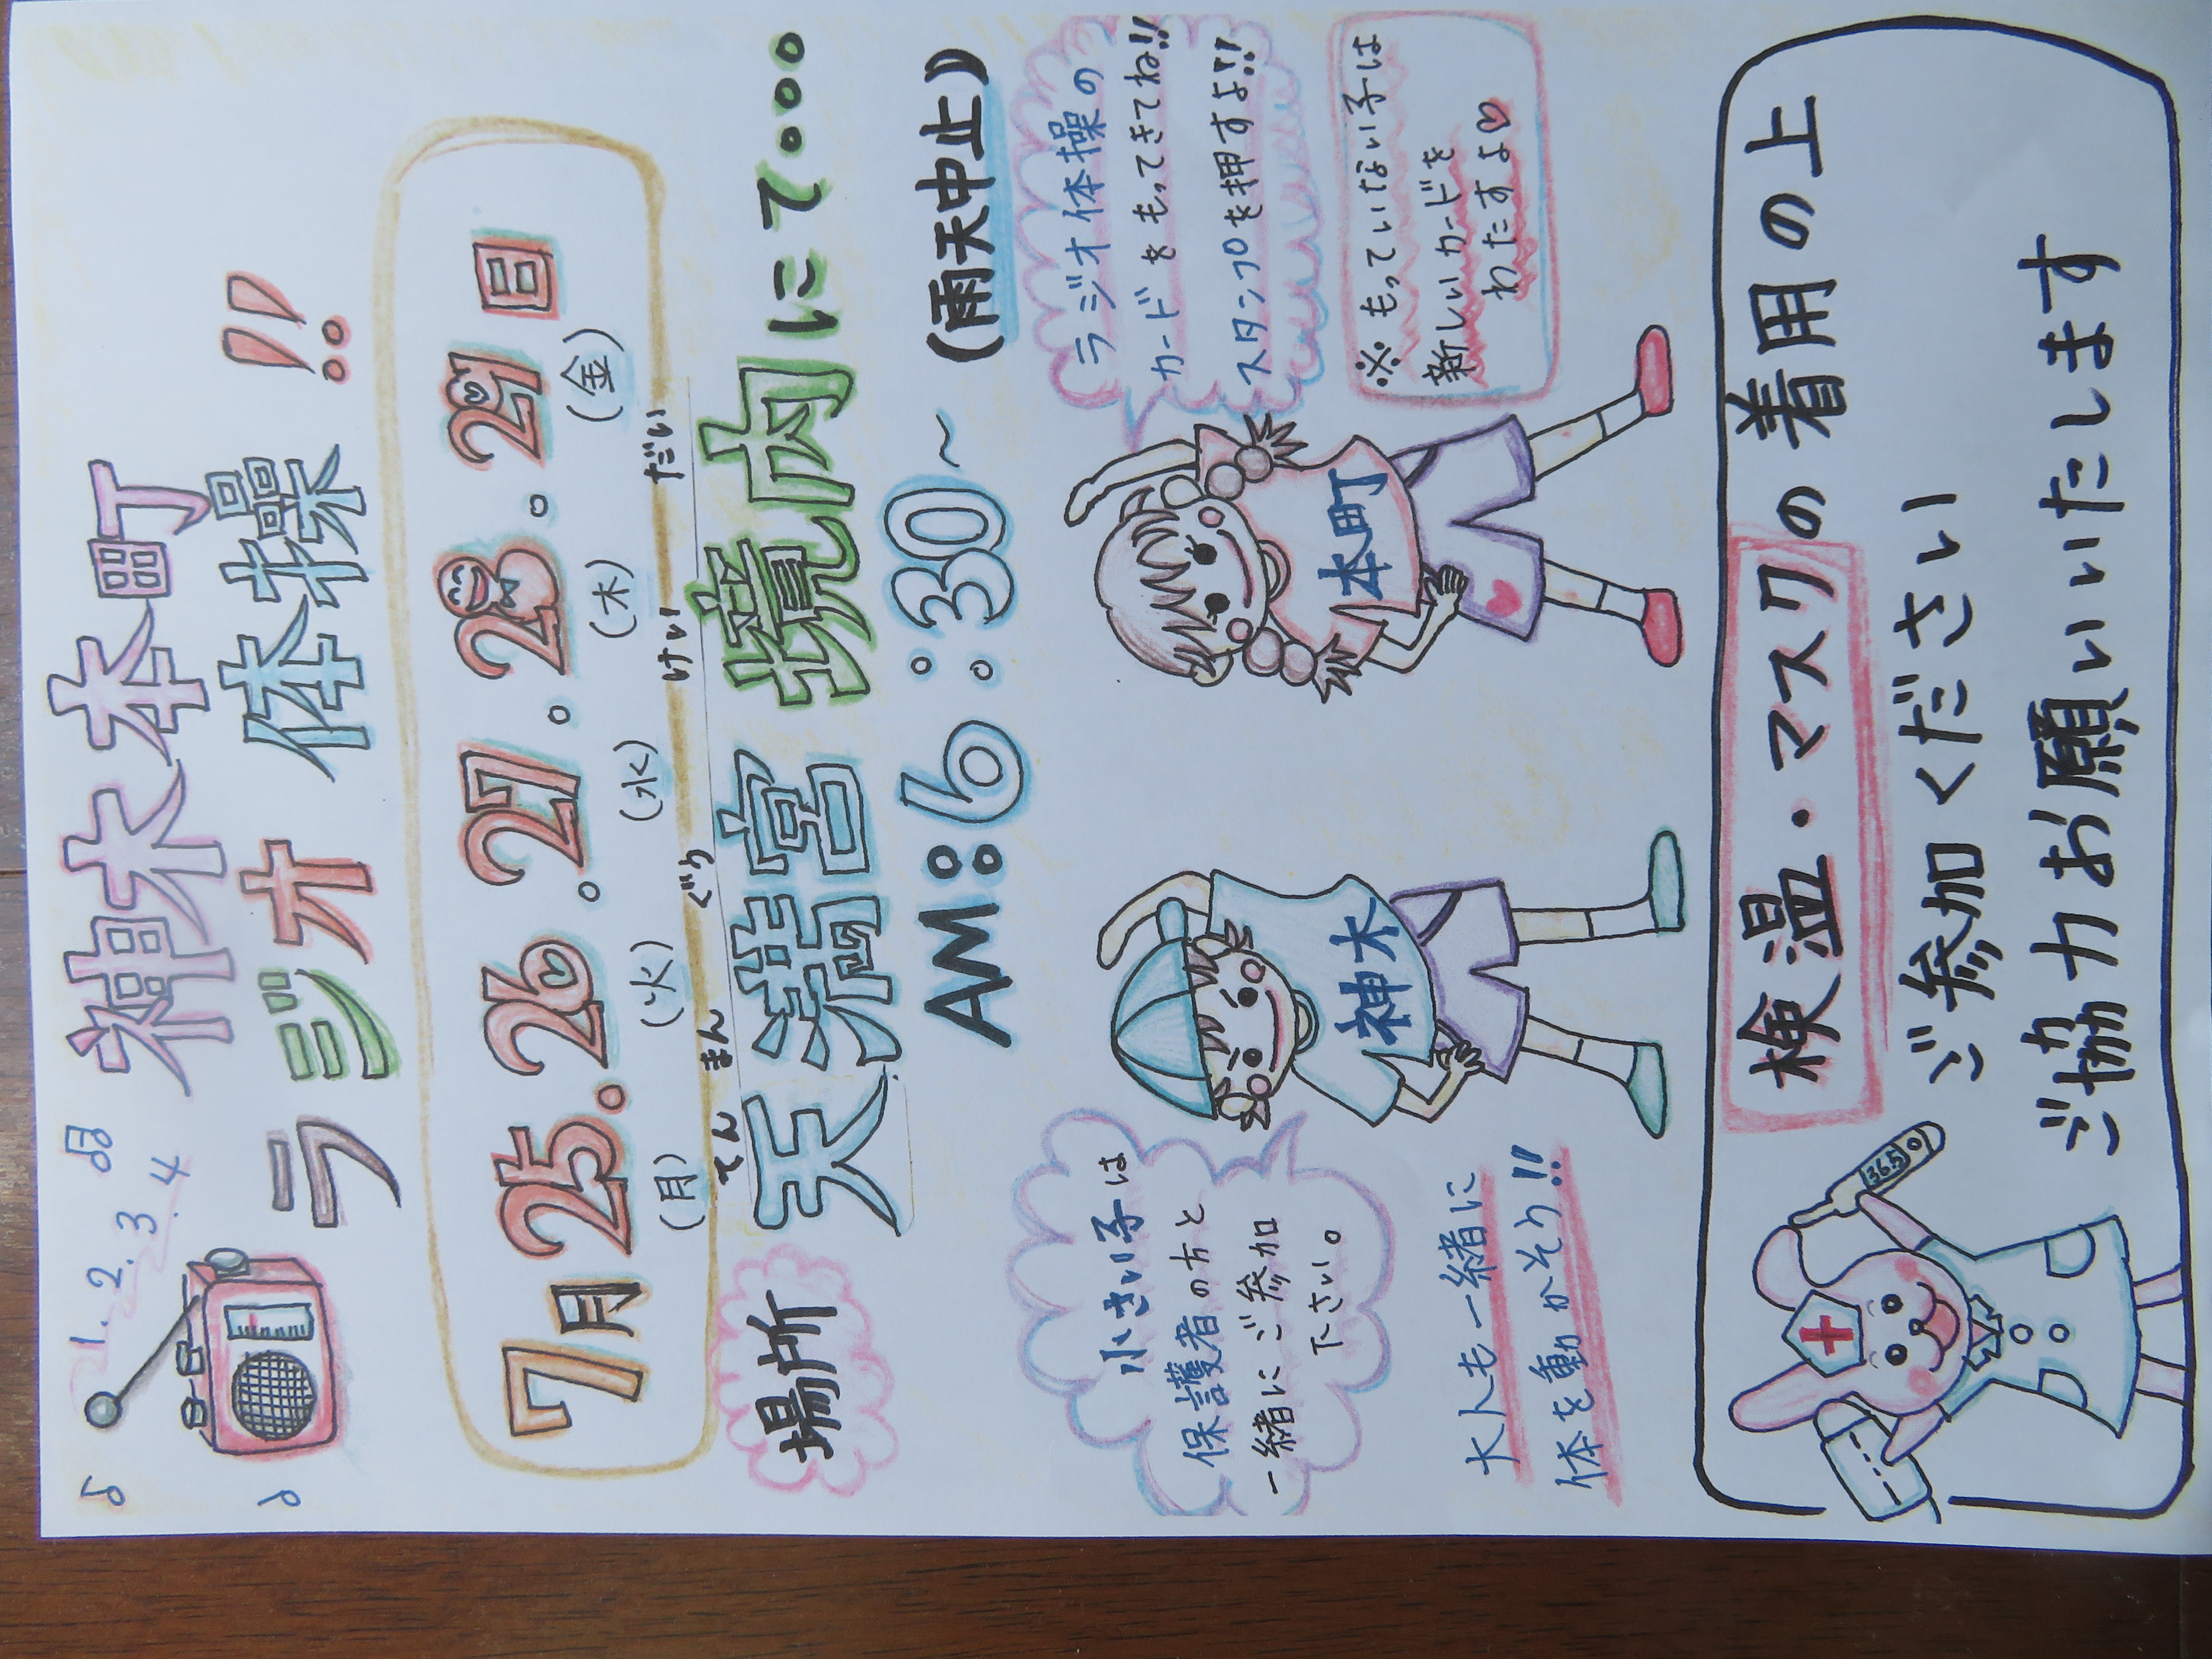 1.2.3.4
神木本町
ラジオ体操!!
7月25.26.27.28.29日
(月)(火)(水)(木)(金)
てんまんぐう けいだい
場所 天満宮境内にて・・・
AM:6:30〜 (雨天中止)
小さい子は
保護者の方と
一緒にご参加
下さい。
ラジオ体操の
カードをもってきてね!!
スタンプを押すよ!!
※もっていない子は
新しいカードを
わたすよ♡
神木
本町
大人も一緒に
体を動かそう!!
36.5
検温・マスクの着用の上
ご参加ください
ご協力お願いいたします